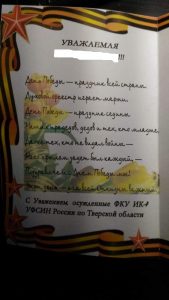 УВАЖАЕМАЯ
!!!
День Победы — праздник всей страны.
Духовой оркестр играет марши.
День Победы — праздник седины
Наших прадедов, дедов и тех, кто младше.
Даже тех, кто не видел войны —
Но её крылом задет был каждый, —
Поздравляем с Днём Победы мы!
Этот день — для всей России важный.
С Уважением осужденные ФКУ ИК-4
УФСИН России по Тверской области